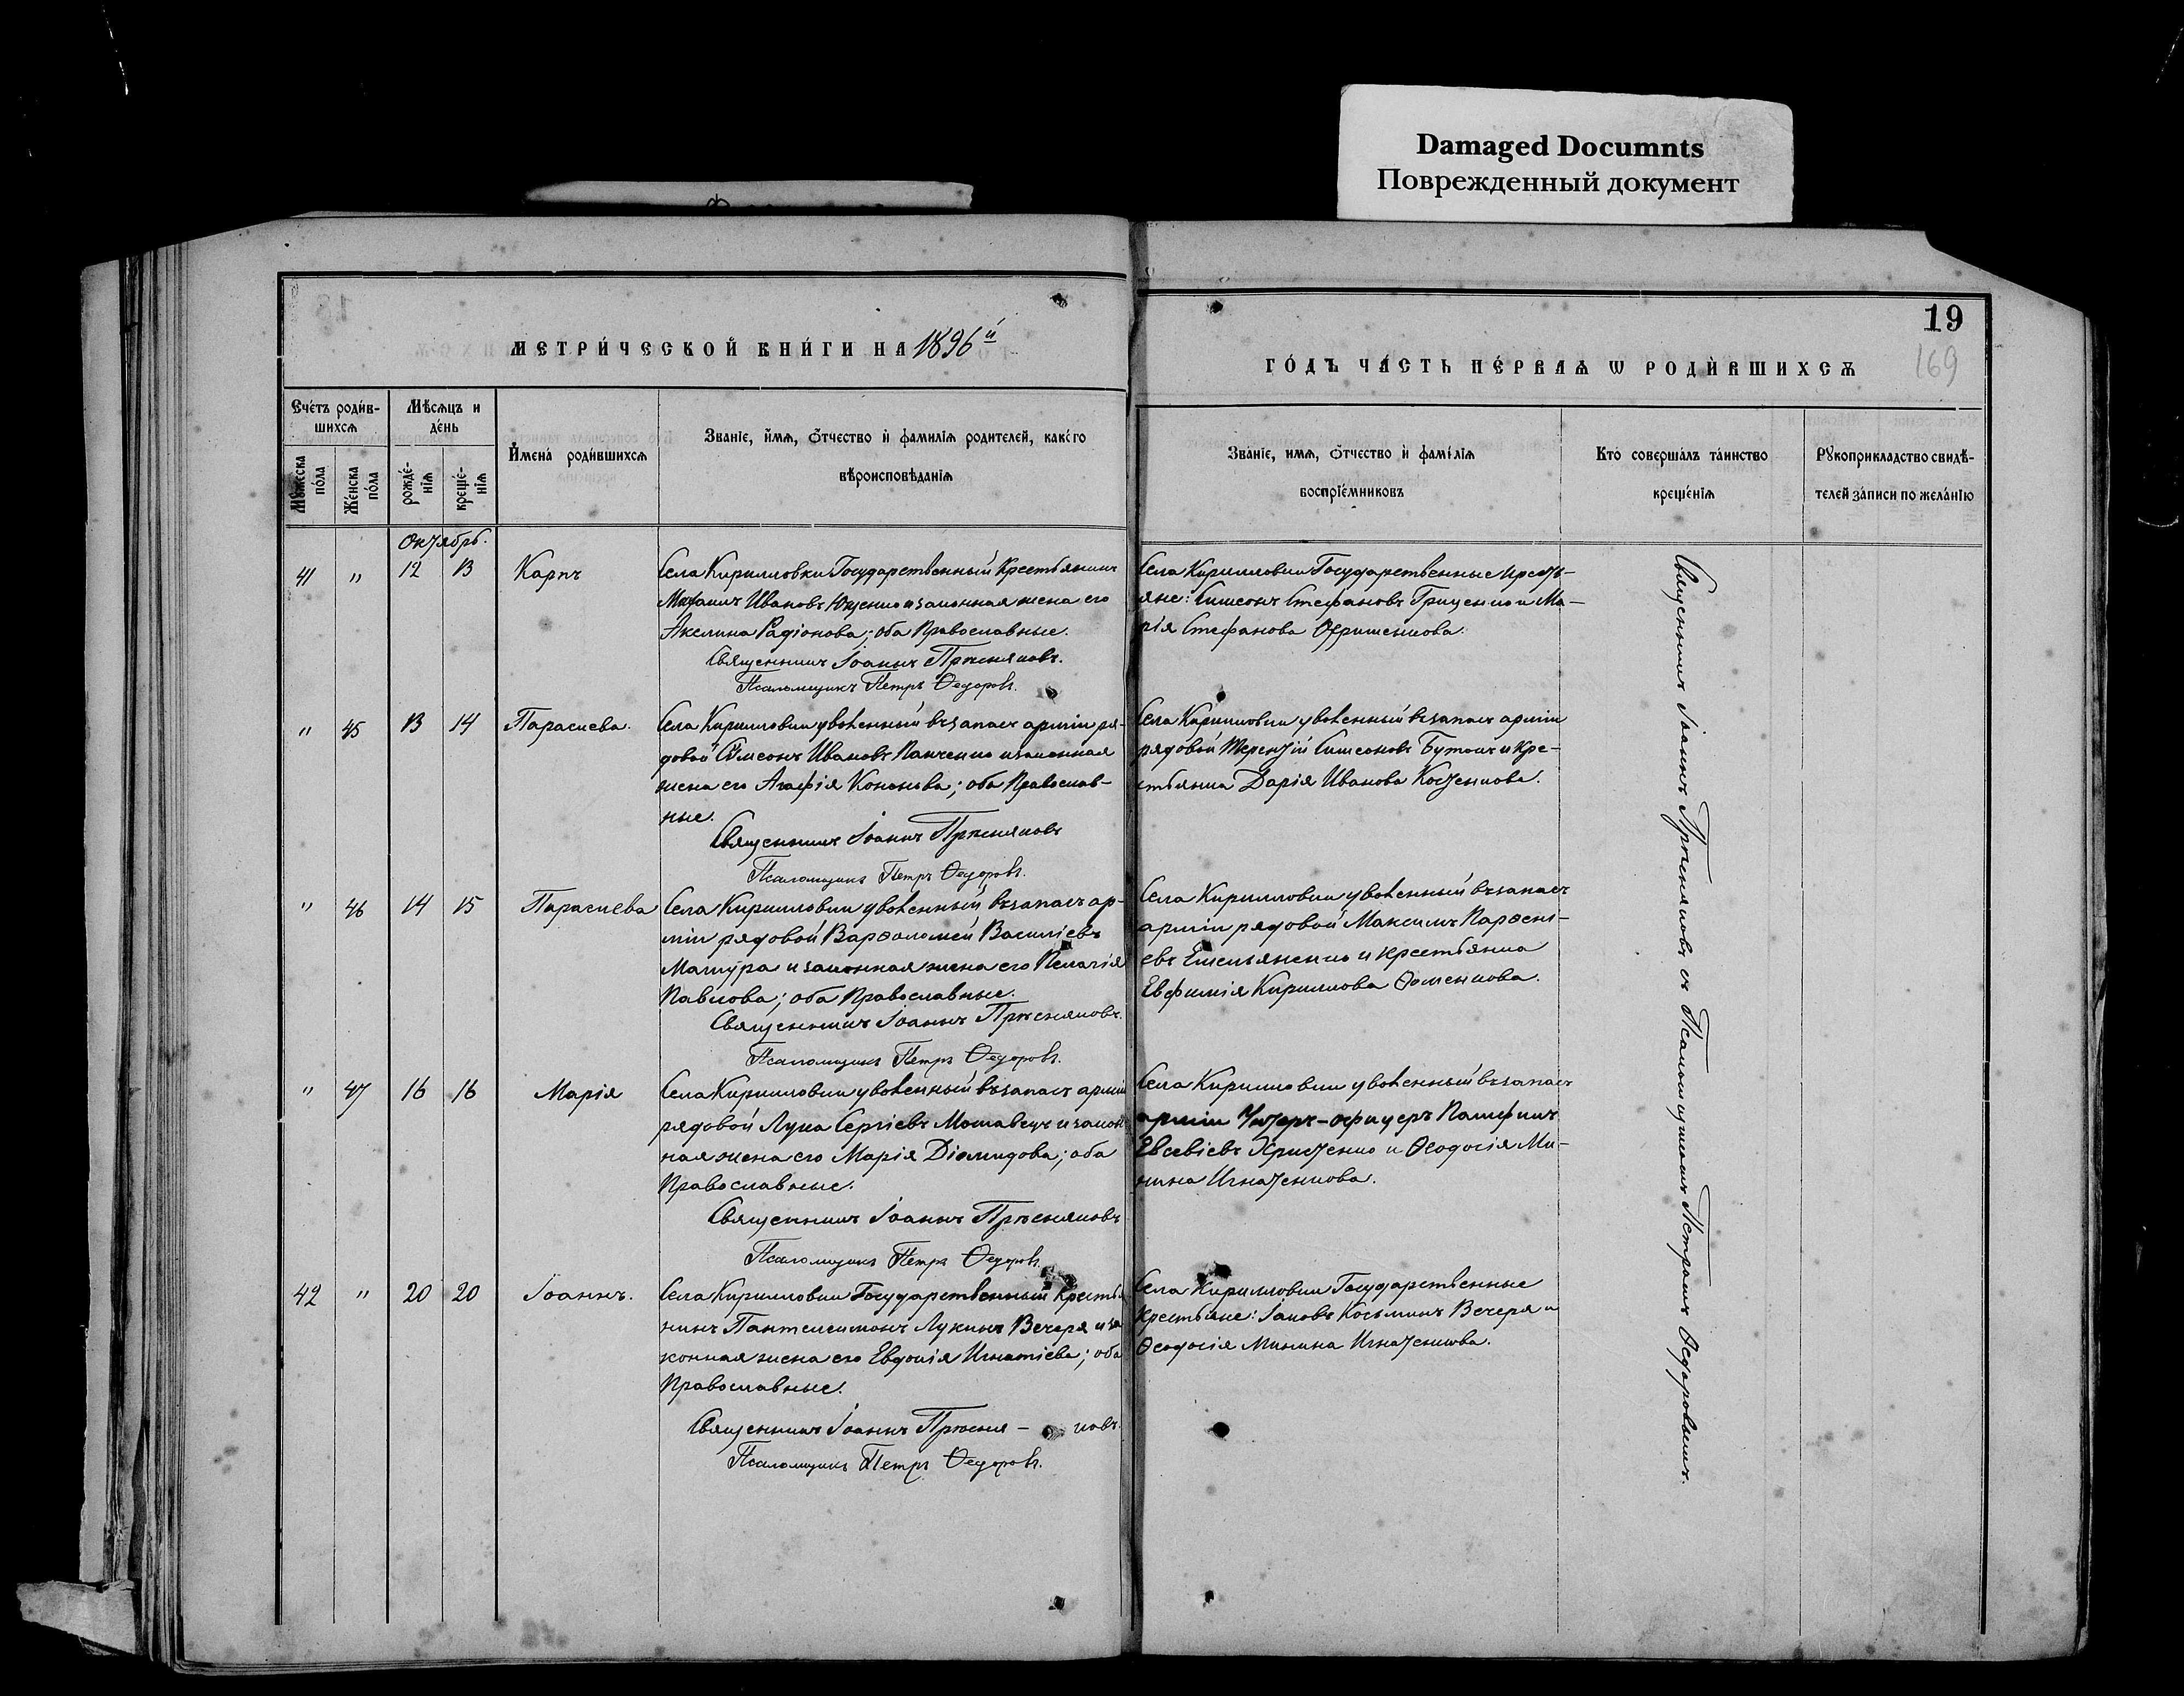 Damaged Documnts
Поврежденный документ
МЕТРИ́ЧЕСКОЙ КНИ́ГИ НА 1896й
ГО́ДЪ ЧА́СТЬ ПЕ́РВАѦ Ѡ РОДИ́ВШИХСѦ
19
169
Сче́тъ роди́в-
шихсѧ
Мѣ́сѧцъ и
де́нь
Мꙋ́жеска
по́ла
Же́нска
по́ла
рожде́-
нїѧ
креще́-
нїѧ
И҆мена́ роди́вшихсѧ
Зва́нїе, и҆́мѧ, ѻ҆́тчество и҆ фами́лїѧ роди́телей, како́гѡ
вѣроисповѣ́данїѧ
Зва́нїе, имѧ, ѻ҆́тчество и҆ фамі́лїѧ
воспрїе́мниковъ
Кто̀ соверша́лъ та́инство
креще́нїѧ
Рꙋкоприкла́дство свидѣ́-
телей за́писи по жела́нїю
Октябрь.
41 " 12 13 Карпъ
Села Кирилловки Государственный Крестьянинъ
Иванов Ющенко и законная жена его
Акелина Радіонова; оба Православные.
Священникъ Іоаннъ Прѣсняковъ.
Псаломщикъ Петръ Ѳедоровъ.
Села Кирилловки Государственные кресть-
яне: Симеонъ Стефановъ Гриценко и Ма-
рія Стефанова
" 45 13 14 Параскева.
Села Кирилловки уволенный въ запасъ арміи ря-
довой Симеонъ Ивановъ Панченко и законная
жена его Агафія Кононова; оба Православ-
ные.
Священникъ Іоаннъ Прѣсняковъ
Псаломщикъ Петръ Ѳедоровъ.
Села Кирилловки уволенный въ запасъ арміи
рядовой Терентій Симеоновъ Бутокъ и кре-
стьянка Дарія Иванова Костенкова.
" 46 14 15 Параскева
Села Кирилловки уволенный въ запасъ ар-
міи рядовой Варѳоломей Василіевъ
Мащура и законная жена его Пелагія
Павлова; оба Православные.
Священникъ Іоаннъ Прѣсняковъ.
Псаломщикъ Петръ Ѳедоровъ.
Села Кирилловки уволенный въ запасъ
арміи рядовой Максимъ Парѳені-
евъ Емельяненко и крестьянка
Евфимія Кириллова Ѳоменкова.
" 47 16 16 Марія
Села Кирилловки уволенный въ запасъ арміи
рядовой Лука Сергіевъ Мошавецъ и закон
ная жена его Марія Діомидова; оба
Православные.
Священникъ Іоаннъ Прѣсняковъ
Псаломщикъ Петръ Ѳедоровъ.
Села Кирилловки уволенный въ запасъ
арміи Унтеръ-офицеръ Памфилъ
Евсевіевъ Христенко и Ѳеодосія Ми-
нина Игнатенкова.
42 " 20 20 Іоаннъ.
Села Кирилловки Государственный Крестья
нинъ Пантелеимонъ Лукинъ Вечеря и за
конная жена его Евдокія Игнатіева; оба
Православные.
Священникъ Іоаннъ Прѣсня- ковъ.
Псаломщикъ Петръ Ѳедоровъ.
Села Кирилловки Государственные
Крестьяне: Іаковъ Косьминъ Вечеря и
Ѳеодосія Минина Игнатенкова.
Священникъ Іоаннъ Прѣсняковъ съ Псаломщикомъ Петромъ Ѳедоровымъ.